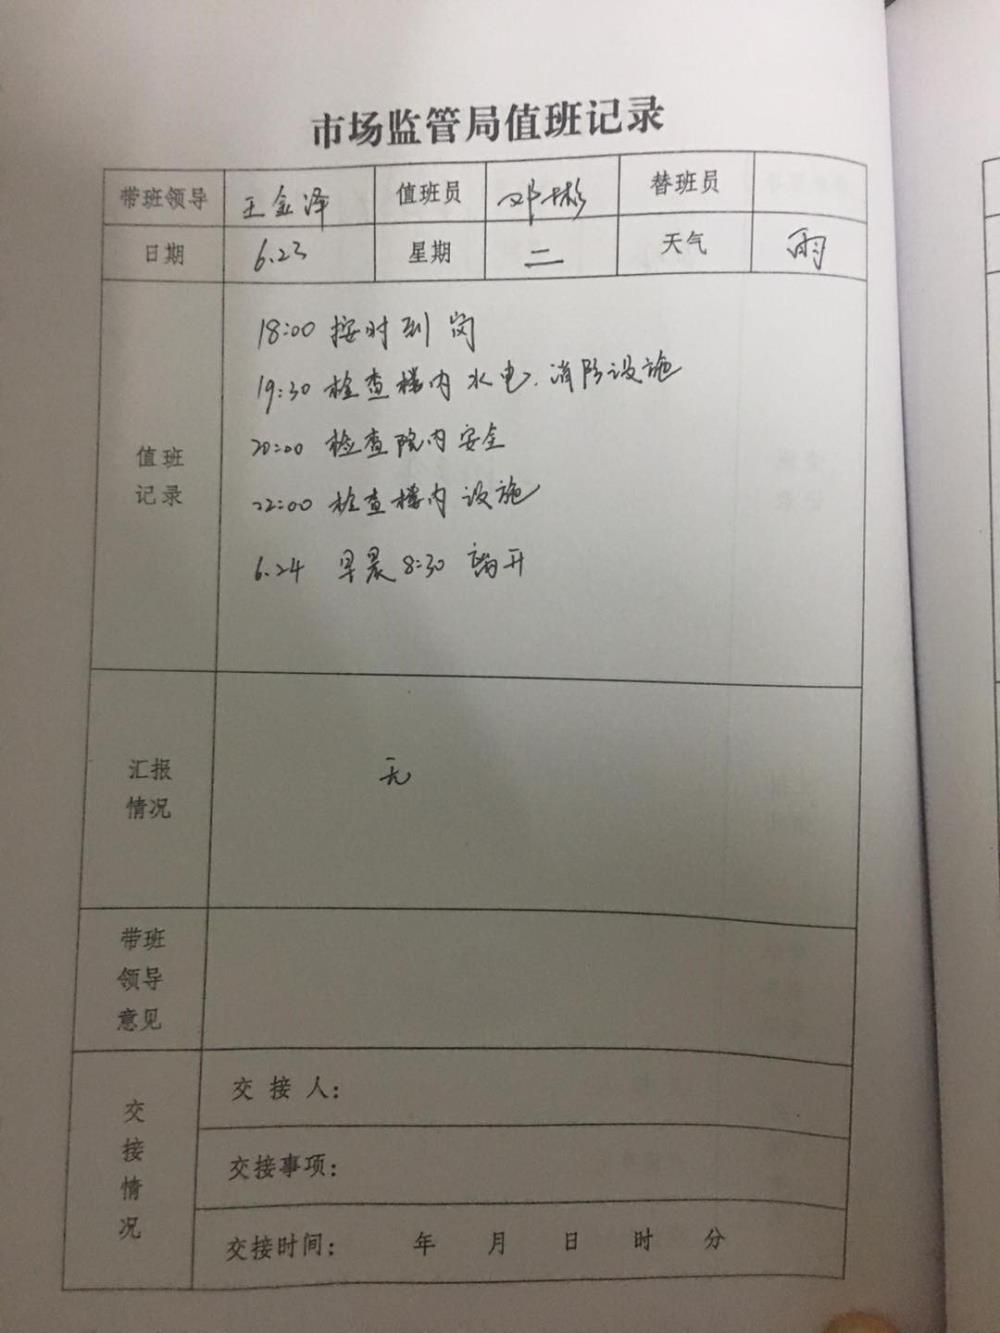 市场监管局值班记录
带班领导 王金泽 值班员 邓彬 替班员
日期 6.23 星期 二 天气 雨
18:00 按时到岗
19:30 检查楼内水电、消防设施
20:00 检查院内安全
值班
记录
22:00 检查楼内设施
6.24 早晨8:30 离开
汇报
情况
无
带班
领导
意见
交接情况
交接人:
交接事项:
交接时间: 年 月 日 时 分